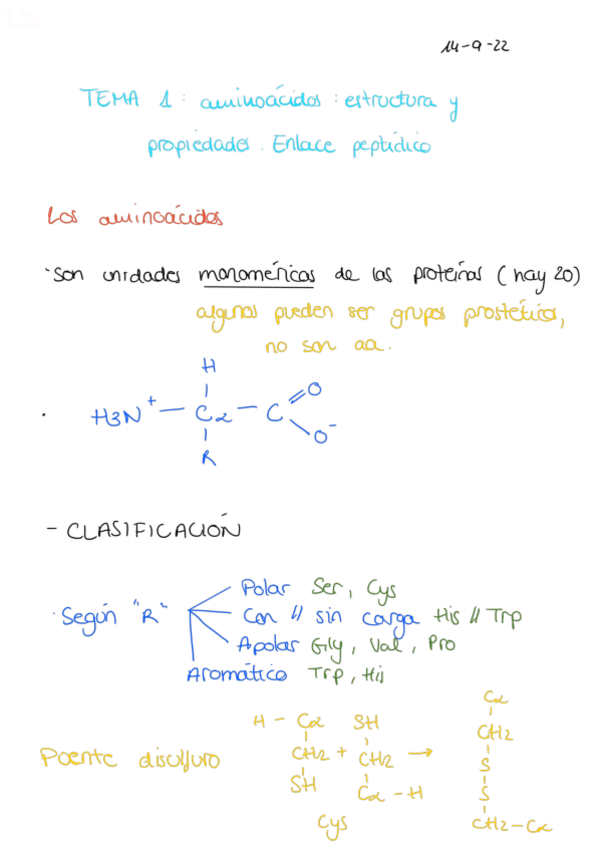 14-9-22
TEMA 1: aminoácidos: estructura y
propiedades. Enlace peptídico
Los aminoácidos
· Son unidades monoméricas de las proteínas (hay 20)
algunos pueden ser grupos prostéticos,
no son aa.
H
H3N+ — Cα — C = O
O-
R
- CLASIFICACIÓN
Polar Ser, Cys
· Según "R" Con // sin carga His // Trp
Apolar Gly, Val, Pro
Aromático Trp, His
H - Cα SH Cα
CH2 + CH2 → CH2
Puente disulfuro SH Cα - H S
S
Cys CH2-Cα